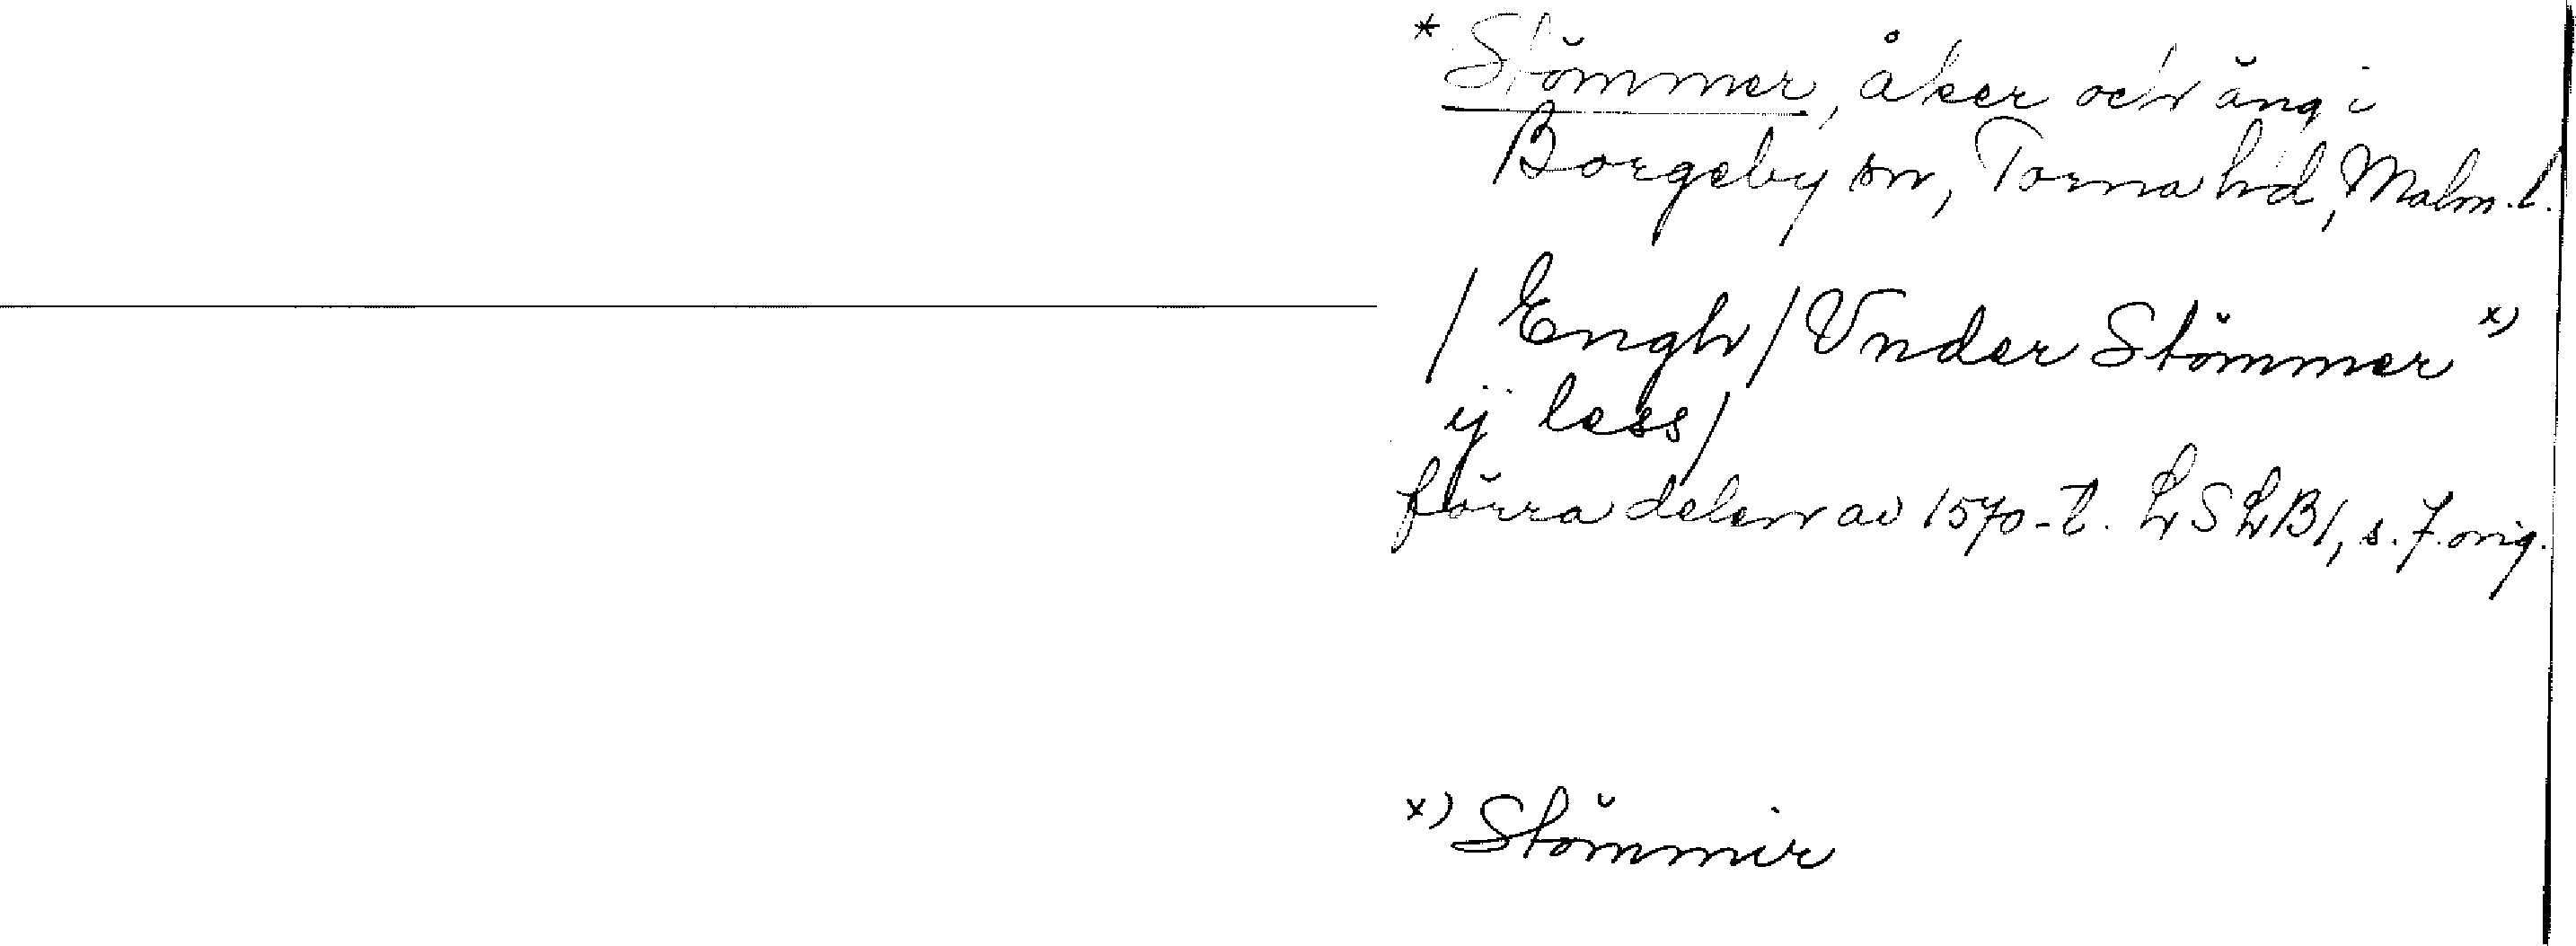 * Stömmer, åker och äng i
Borgeby sn, Torna hd, Malm. l.
/ Engh / Vnder Stömmer x)
ij less /
förra delen av 1570-t. LSLB1, s. 7. orig.
x) Stömmir